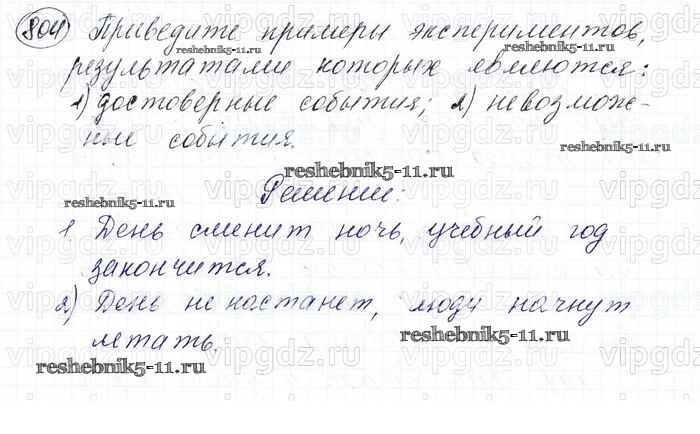 804) Приведите примеры экспериментов,
reshebnik5-11.ru
результатами которых являются:
1) достоверные события; 2) невозмож-
ные события.
reshebnik5-11.ru
reshebnik5-11.ru
Решение:
reshebnik5-11.ru
1 День сменит ночь, учебный год
закончится.
2) День не настанет, люди начнут
reshebnik5-11.ru
летать.
reshebnik5-11.ru
vipgdz.ru